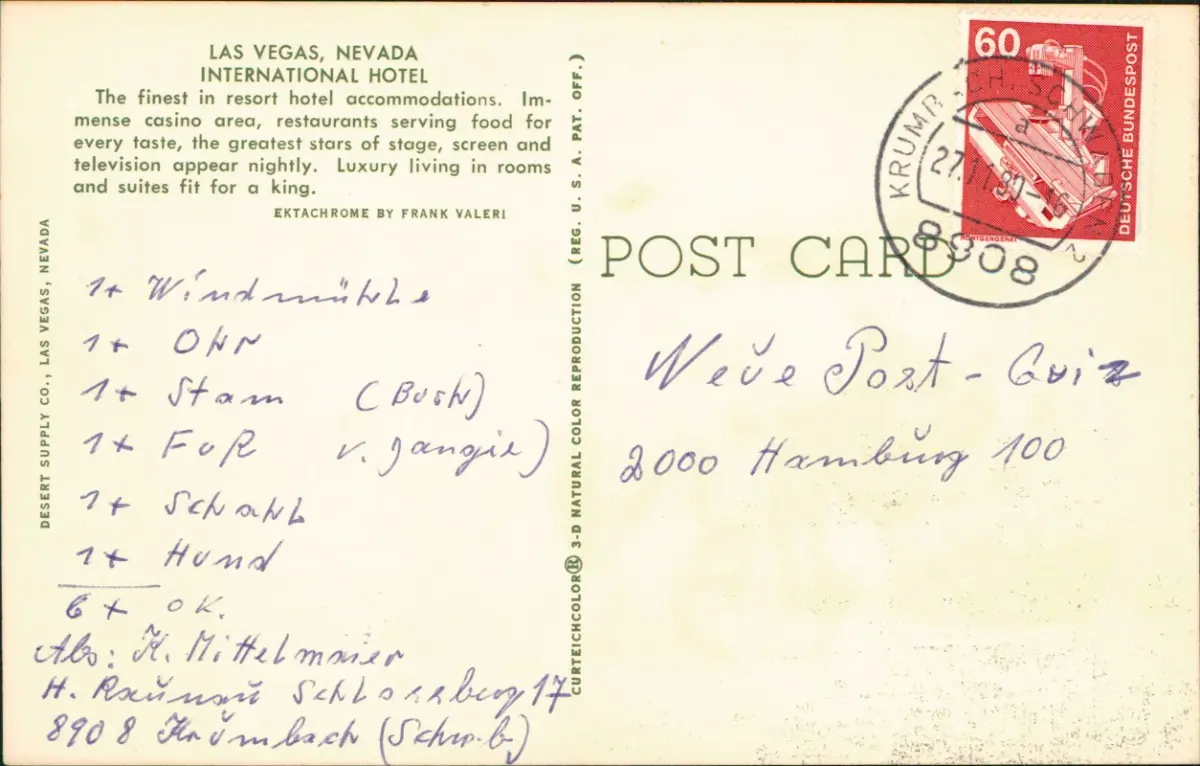 LAS VEGAS, NEVADA
INTERNATIONAL HOTEL
The finest in resort hotel accommodations. Im-
mense casino area, restaurants serving food for
every taste, the greatest stars of stage, screen and
television appear nightly. Luxury living in rooms
and suites fit for a king.
EKTACHROME BY FRANK VALERI
DESERT SUPPLY CO., LAS VEGAS, NEVADA
1+ Windmühle
1+ Ohr
1+ Stam (Buch)
1+ Fuß v. Jangie)
1+ Schahl
1+ Hund
6+ OK.
Abs: K. Mittelmaier
H. Raunau Schlossberg 17
8908 Krumbach (Schwb)
CURTEICHCOLOR® 3-D NATURAL COLOR REPRODUCTION (REG. U. S. A. PAT. OFF.)
60
DEUTSCHE BUNDESPOST
RÖNTGENGERÄT
8908
POST CARD
Neue Post - Quiz
2000 Hamburg 100